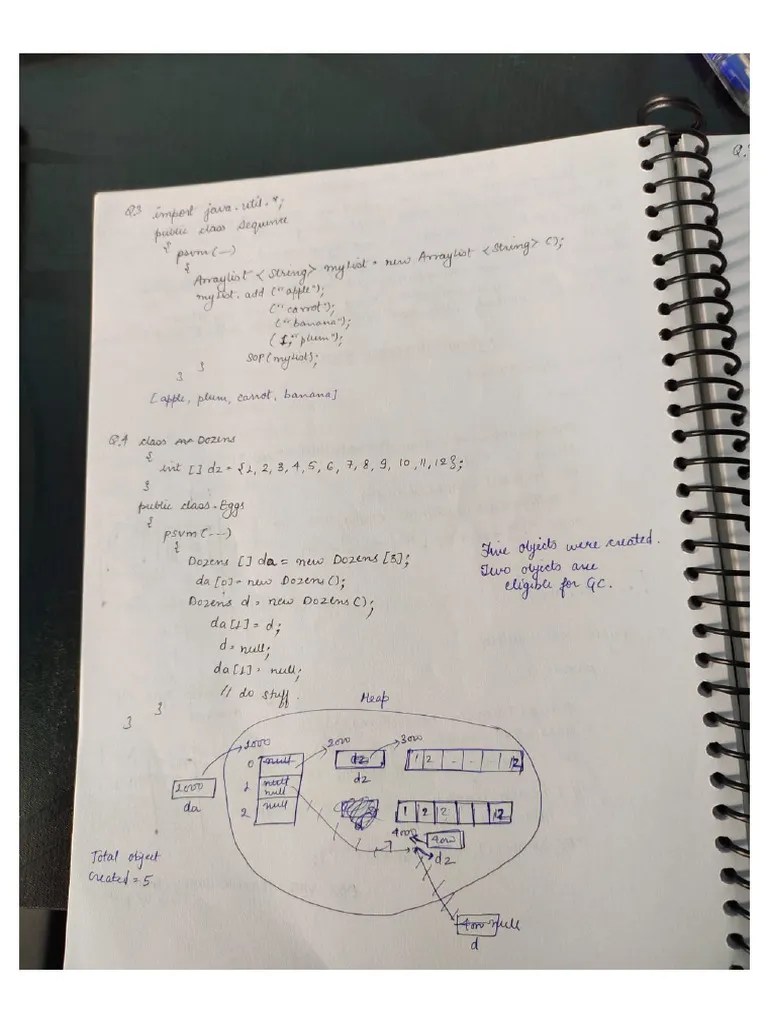 Q.3 import java.util.*;
public class Sequence
{ psvm(—)
{
Arraylist <String> mylist = new Arraylist <String> ();
mylist.add ("apple");
("carrot");
("banana");
(1,"plum");
SOP(mylist);
}
}
[apple, plum, carrot, banana]
Q.4 class Dozens
{
int [] dz = {1, 2, 3, 4, 5, 6, 7, 8, 9, 10, 11, 12};
}
public class Eggs
{
psvm(---)
{
Dozens [] da = new Dozens [3];
da [0] = new Dozens ();
Dozens d = new Dozens();
da [1] = d;
d = null;
da [1] = null;
// do stuff.
}
}
Five objects were created.
Two objects are
eligible for GC.
Heap
1000
2000
3000
0
null
dz
1 2 - - 12
dz
1000
da
1
null
null
2
null
1 2 2 12
4000
4000
dz
Total object
created = 5
4000 null
d
Q.